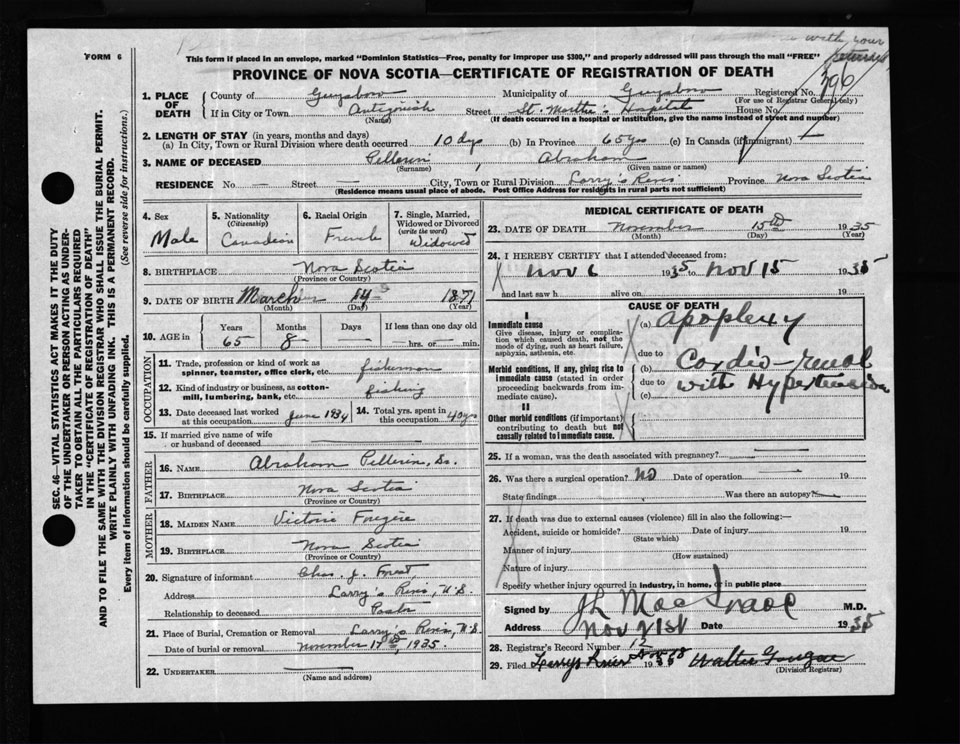 with your
FORM 6
This form if placed in an envelope, marked "Dominion Statistics—Free, penalty for improper use $300," and properly addressed will pass through the mail "FREE"
PROVINCE OF NOVA SCOTIA—CERTIFICATE OF REGISTRATION OF DEATH
396
1. PLACE OF DEATH
County of Guysboro Municipality of Guysboro Registered No.
(For use of Registrar General only)
If in City or Town Antigonish Street St. Martha's Hospital House No.
(Name) (If death occurred in a hospital or institution, give the name instead of street and number)
2. LENGTH OF STAY (in years, months and days)
(a) In City, Town or Rural Division where death occurred 10 dys (b) In Province 65 yrs (c) In Canada (if immigrant)
3. NAME OF DECEASED Pellerin, Abraham
(Surname) (Given name or names)
RESIDENCE No — Street — City, Town or Rural Division Larry's River Province Nova Scotia
(Residence means usual place of abode. Post Office Address for residents in rural parts not sufficient)
4. Sex
Male
5. Nationality
(Citizenship)
Canadian
6. Racial Origin
French
7. Single, Married, Widowed or Divorced
(write the word)
Widowed
8. BIRTHPLACE Nova Scotia
(Province or Country)
9. DATE OF BIRTH March 14 1871
(Month) (Day) (Year)
10. AGE in
Years Months Days If less than one day old
65 8 — hrs. or min.
OCCUPATION
11. Trade, profession or kind of work as spinner, teamster, office clerk, etc. fisherman
12. Kind of industry or business, as cotton-mill, lumbering, bank, etc. fishing
13. Date deceased last worked at this occupation June 1934
14. Total yrs. spent in this occupation 40 yrs
15. If married give name of wife or husband of deceased
FATHER
16. NAME Abraham Pellerin, Sr.
17. BIRTHPLACE Nova Scotia
(Province or Country)
MOTHER
18. MAIDEN NAME Victoire Fougère
19. BIRTHPLACE Nova Scotia
(Province or Country)
20. Signature of informant Chas. J. Forest
Address Larry's River, N.S.
Relationship to deceased Pastor
21. Place of Burial, Cremation or Removal Larry's River, N.S.
Date of burial or removal November 17th, 1935.
22. UNDERTAKER
(Name and address)
MEDICAL CERTIFICATE OF DEATH
23. DATE OF DEATH November 15th 1935
(Month) (Day) (Year)
24. I HEREBY CERTIFY that I attended deceased from:
Nov 6 1935 to Nov 15 1935
and last saw h alive on 19
CAUSE OF DEATH
I
Immediate cause
Give disease, injury or complication which caused death, not the mode of dying, such as heart failure, asphyxia, asthenia, etc.
(a) Apoplexy
due to
Morbid conditions, if any, giving rise to immediate cause (stated in order proceeding backwards from immediate cause).
(b) Cardio-renal
due to with Hypertension
(c)
II
Other morbid conditions (if important) contributing to death but not causally related to immediate cause.
25. If a woman, was the death associated with pregnancy?
26. Was there a surgical operation? No Date of operation 19
State findings Was there an autopsy
27. If death was due to external causes (violence) fill in also the following:—
Accident, suicide or homicide? Date of injury 19
(State which)
Manner of injury
(How sustained)
Nature of injury
Specify whether injury occurred in industry, in home, or in public place
Signed by J L MacIsaac M.D.
Address Nov 21st Date 1935
28. Registrar's Record Number 12
29. Filed Larrys River 19 Walter
(Division Registrar)
SEC. 46—VITAL STATISTICS ACT MAKES IT THE DUTY
OF THE UNDERTAKER OR PERSON ACTING AS UNDERTAKER TO OBTAIN ALL THE PARTICULARS REQUIRED
IN THE "CERTIFICATE OF REGISTRATION OF DEATH"
AND TO FILE THE SAME WITH THE DIVISION REGISTRAR WHO SHALL ISSUE THE BURIAL PERMIT.
WRITE PLAINLY WITH UNFADING INK. THIS IS A PERMANENT RECORD.
Every item of information should be carefully supplied. (See reverse side for instructions.)